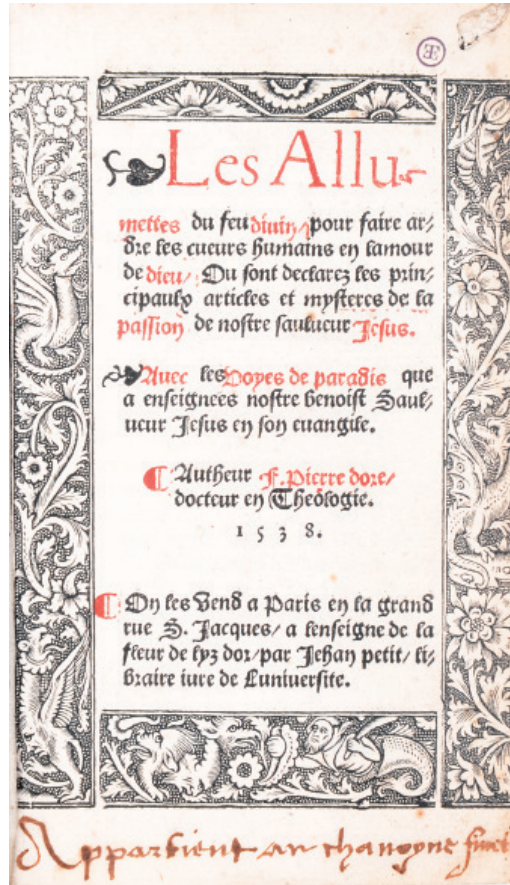 Les Allu-
mettes du feu diuin/ pour faire ar-
dre les cueurs humains en lamour
de dieu/ Ou sont declarez les prin-
cipaulx articles et mysteres de la
passion de nostre saulueur Jesus.
Auec les Voyes de paradis que
a enseignees nostre benoist Saul-
ueur Jesus en son euangile.
¶ Autheur F. Pierre dore/
docteur en Theologie.
1538.
¶ On les Vend a Paris en la grand
rue S. Jacques/ a lenseigne de la
fleur de lyz dor/ par Jehan petit/ li-
braire iure de Luniuersite.
Appartient au chanoyne